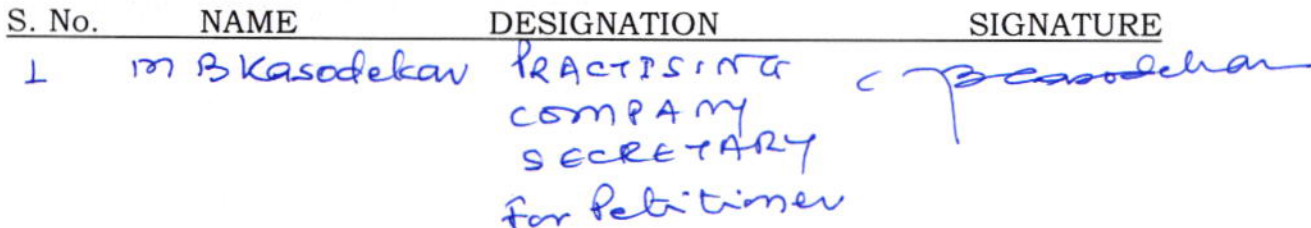 S. No. NAME DESIGNATION SIGNATURE
1 M B Kasodekar PRACTISING
COMPANY
SECRETARY
For Petitioner